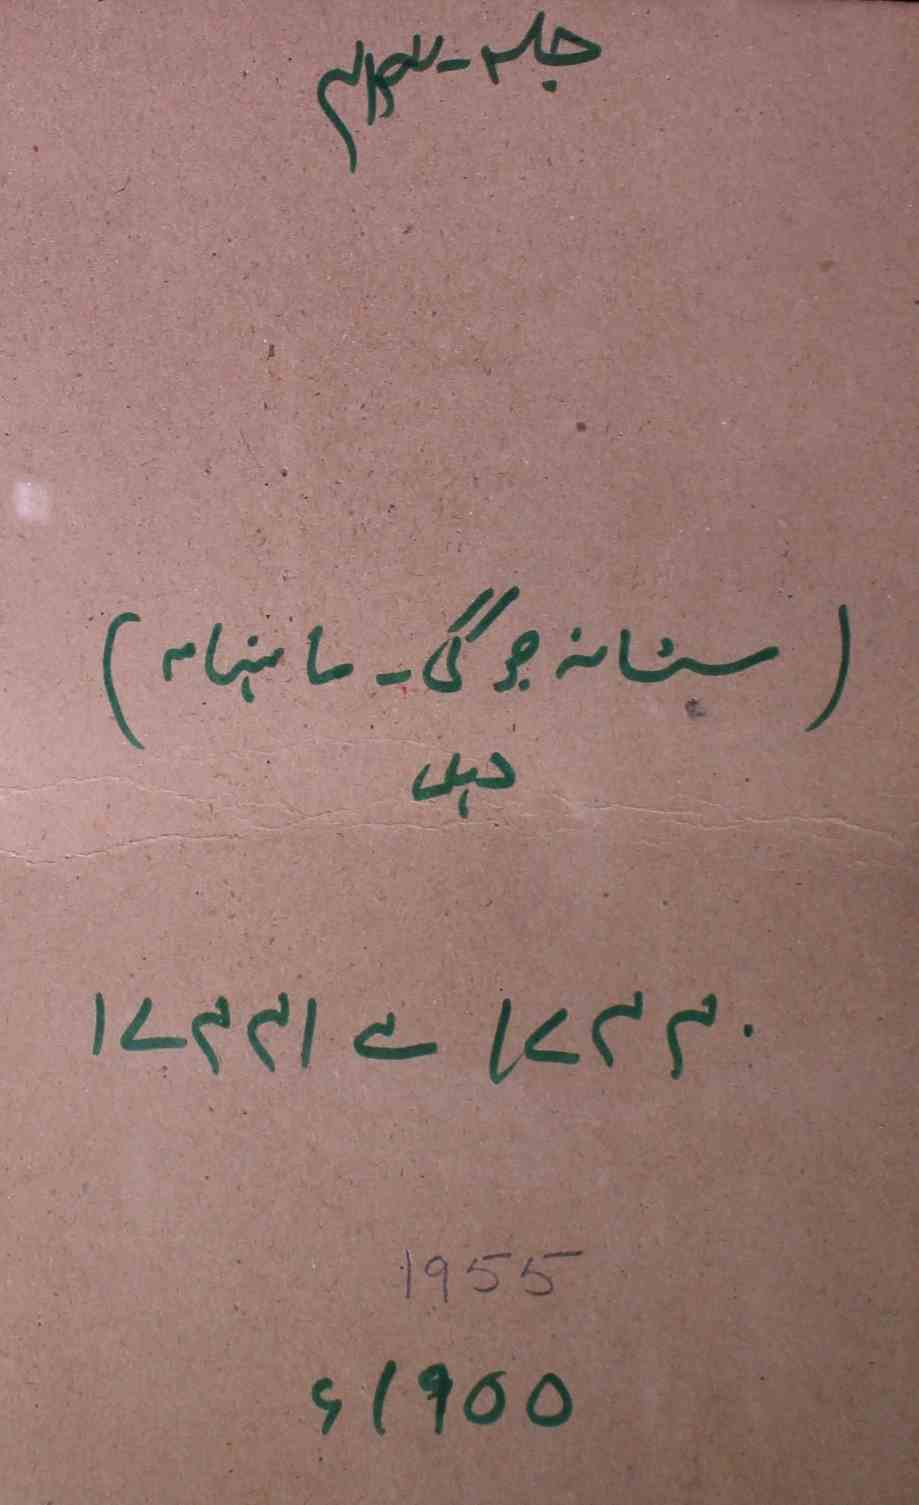 جلد -
(مستانہ جوگی - ماہنامہ)
دہلی
۱۷۴۴۰ سے ۱۷۴۴۱
1955
۱۹۵۵ء